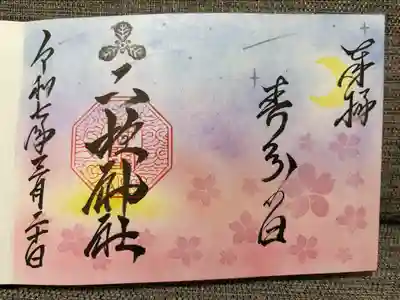 奉拝
春分の日
神社
令和七年三月二十日